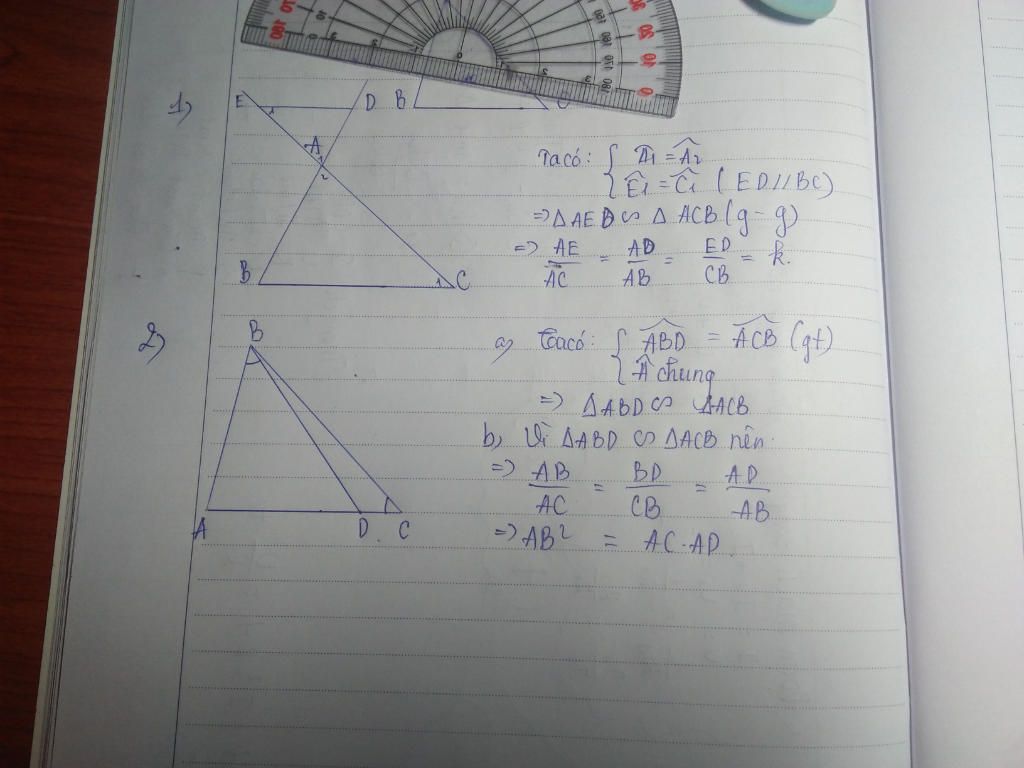 1)
E D B
A
1
2
B 1 C
Ta có: { Â1 = Â2
Ê1 = Ĉ1 ( ED // BC)
=> Δ AED ∽ Δ ACB (g - g)
=> AE/AC = AD/AB = ED/CB = k.
2)
B
A D C
a) Ta có: { ABD = ACB (gt)
Â chung
=> Δ ABD ∽ Δ ACB
b) Vì Δ ABD ∽ Δ ACB nên
=> AB/AC = BD/CB = AD/AB
=> AB² = AC.AD